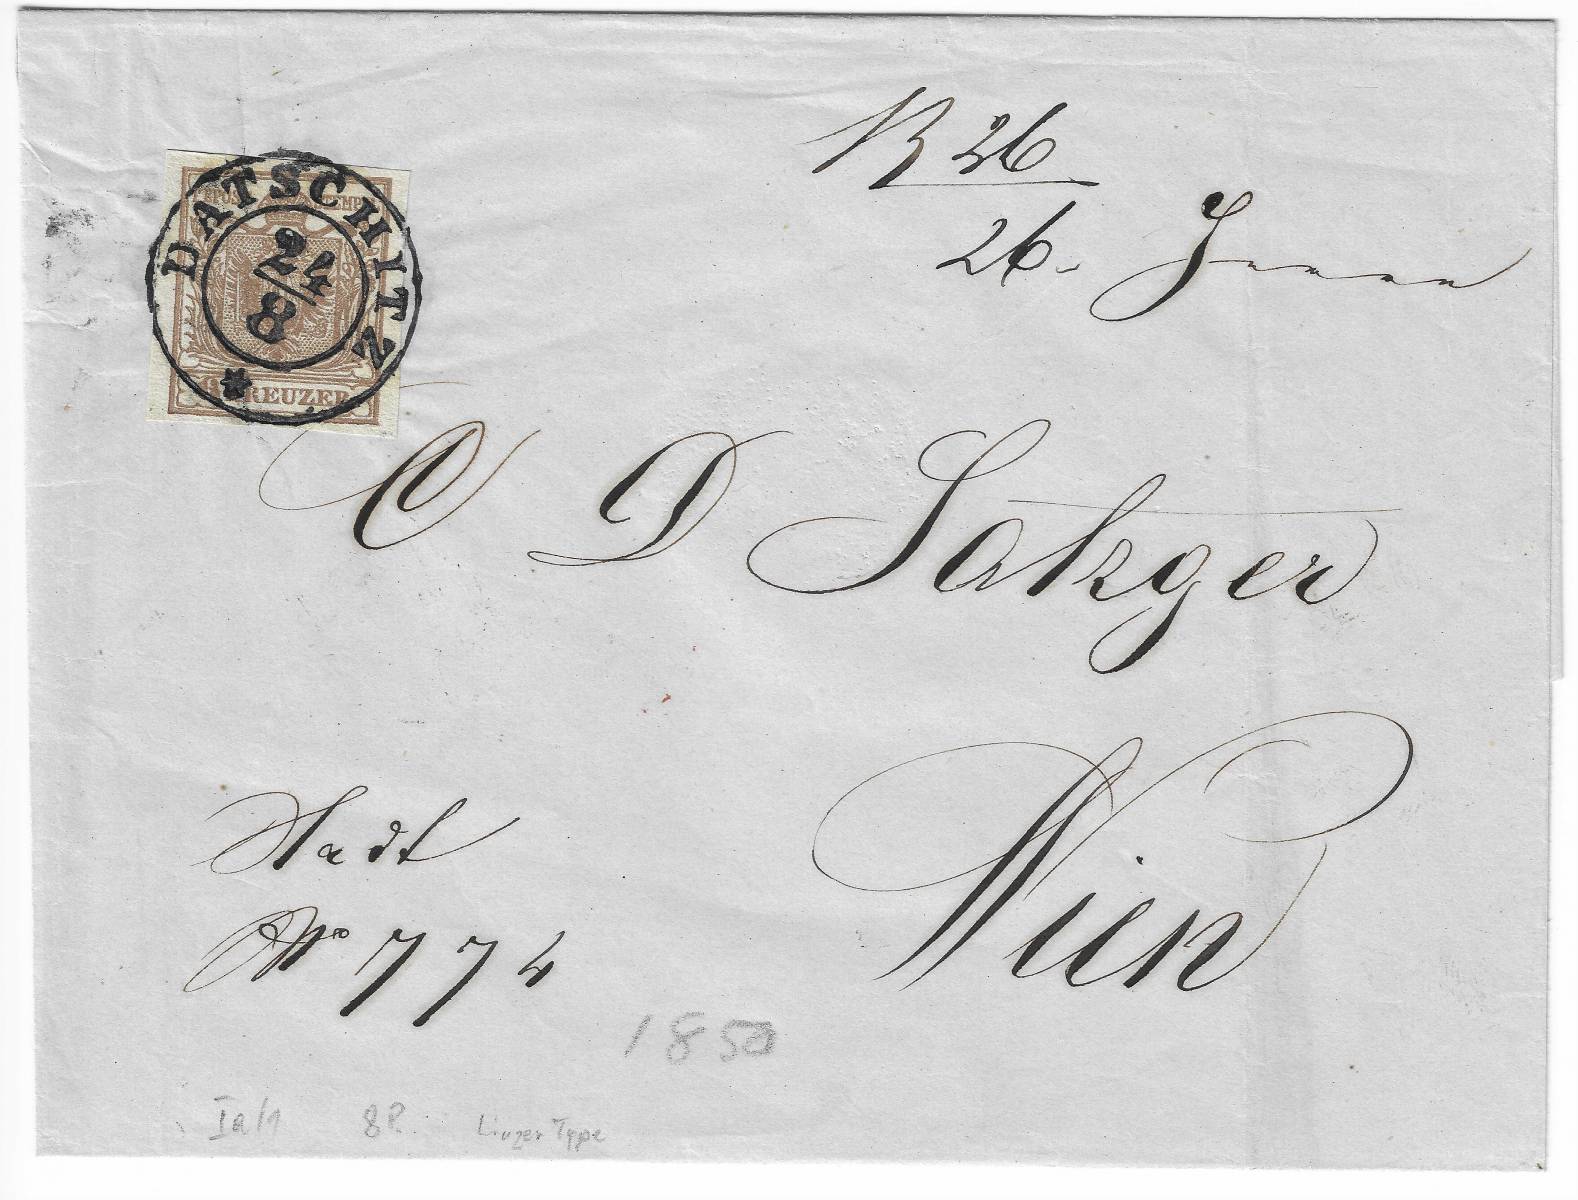 R 26
26.
DATSCHITZ
24/8
KREUZER
C D Sakger
Wien
Stadt
No 774
1850
Ia/1 8P. Linzer Type